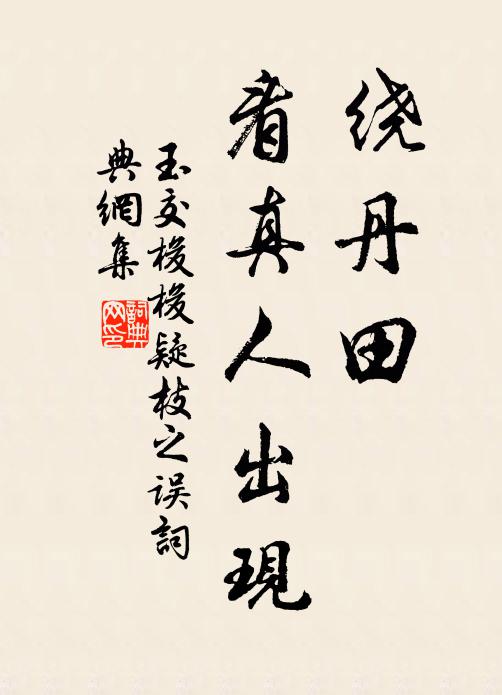 绕丹田
看真人出現
玉交梭梭疑枝之误詞
典網集
詞典
网印